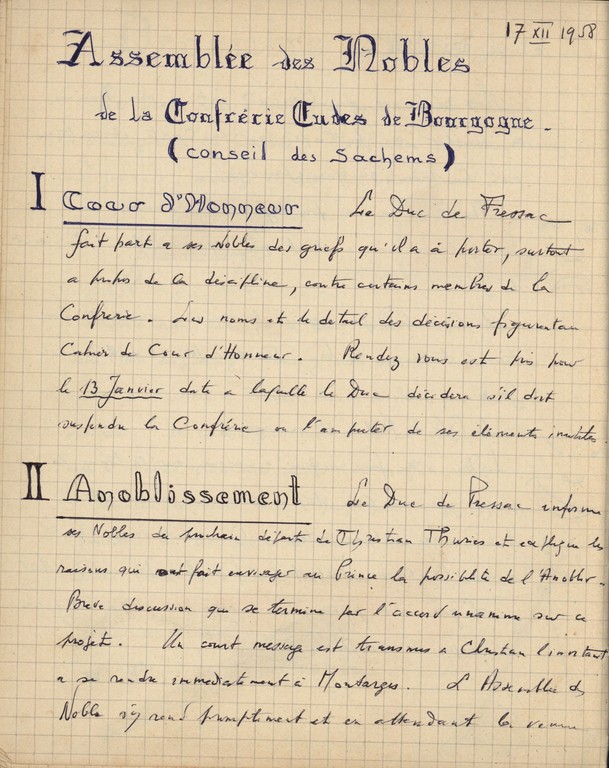 17 XII 1958
Assemblée des Nobles
de la Confrérie Eudes de Bourgogne.
(conseil des Sachems)
I Cour d'Honneur Le Duc de Pressac
fait part a ses Nobles des griefs qu'il a à porter, surtout
a propos de la discipline, contre certains membres de la
Confrerie. Les noms et le detail des décisions figurent au
Cahier de Cour d'Honneur. Rendez vous est pris pour
le 13 Janvier date à laquelle le Duc décidera s'il doit
suspendre la Confrérie ou l'amputer de ses éléments inutiles.
II Anoblissement Le Duc de Pressac informe
ses Nobles du prochain départ de Christian Thuries et explique les
raisons qui ont fait envisager au Prince la possibilité de l'Anoblir.
Breve discussion qui se termine par l'accord unanime sur ce
projet. Un court message est transmis a Christian l'invitant
a se rendre immediatement à Montarges. L'Assemblée des
Nobles s'y rend promptement et en attendant la venue